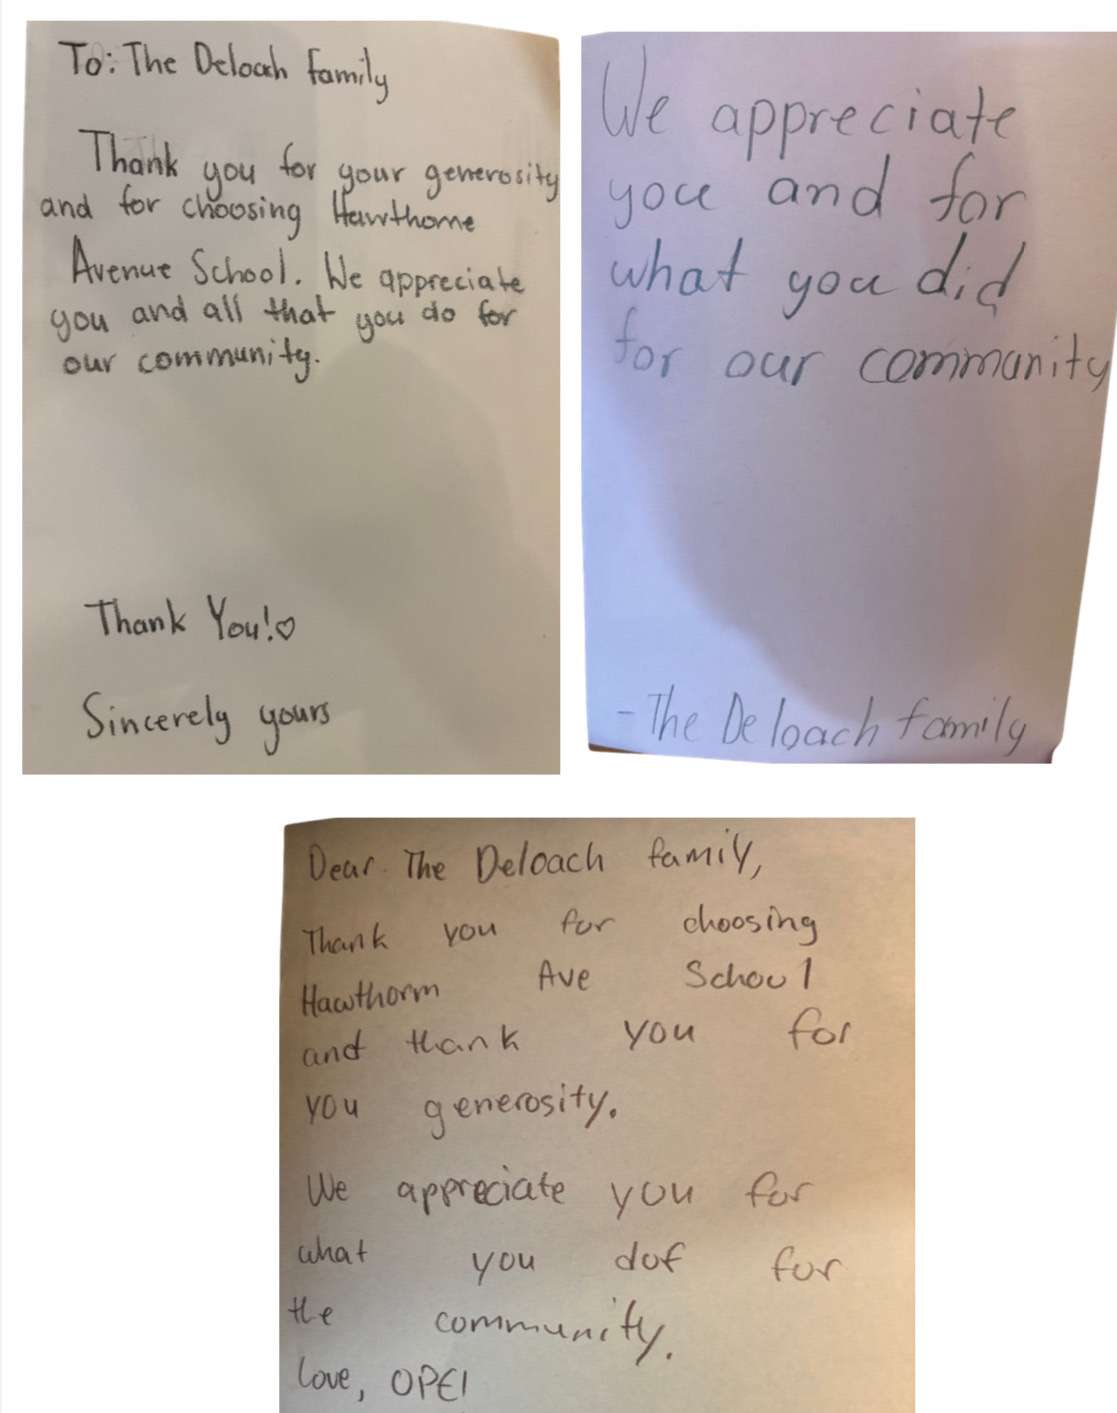 To: The Deloach family
Thank you for your generosity
and for choosing Hawthorne
Avenue School. We appreciate
you and all that you do for
our community.
Thank You!♡
Sincerely yours
We appreciate
you and for
what you did
for our community
- The Deloach family
Dear The Deloach famiy,
Thank you for choosing
Hawthorm Ave School
and thank you for
you generosity.
We appreciate you for
what you dof for
the community.
Love, OPEI